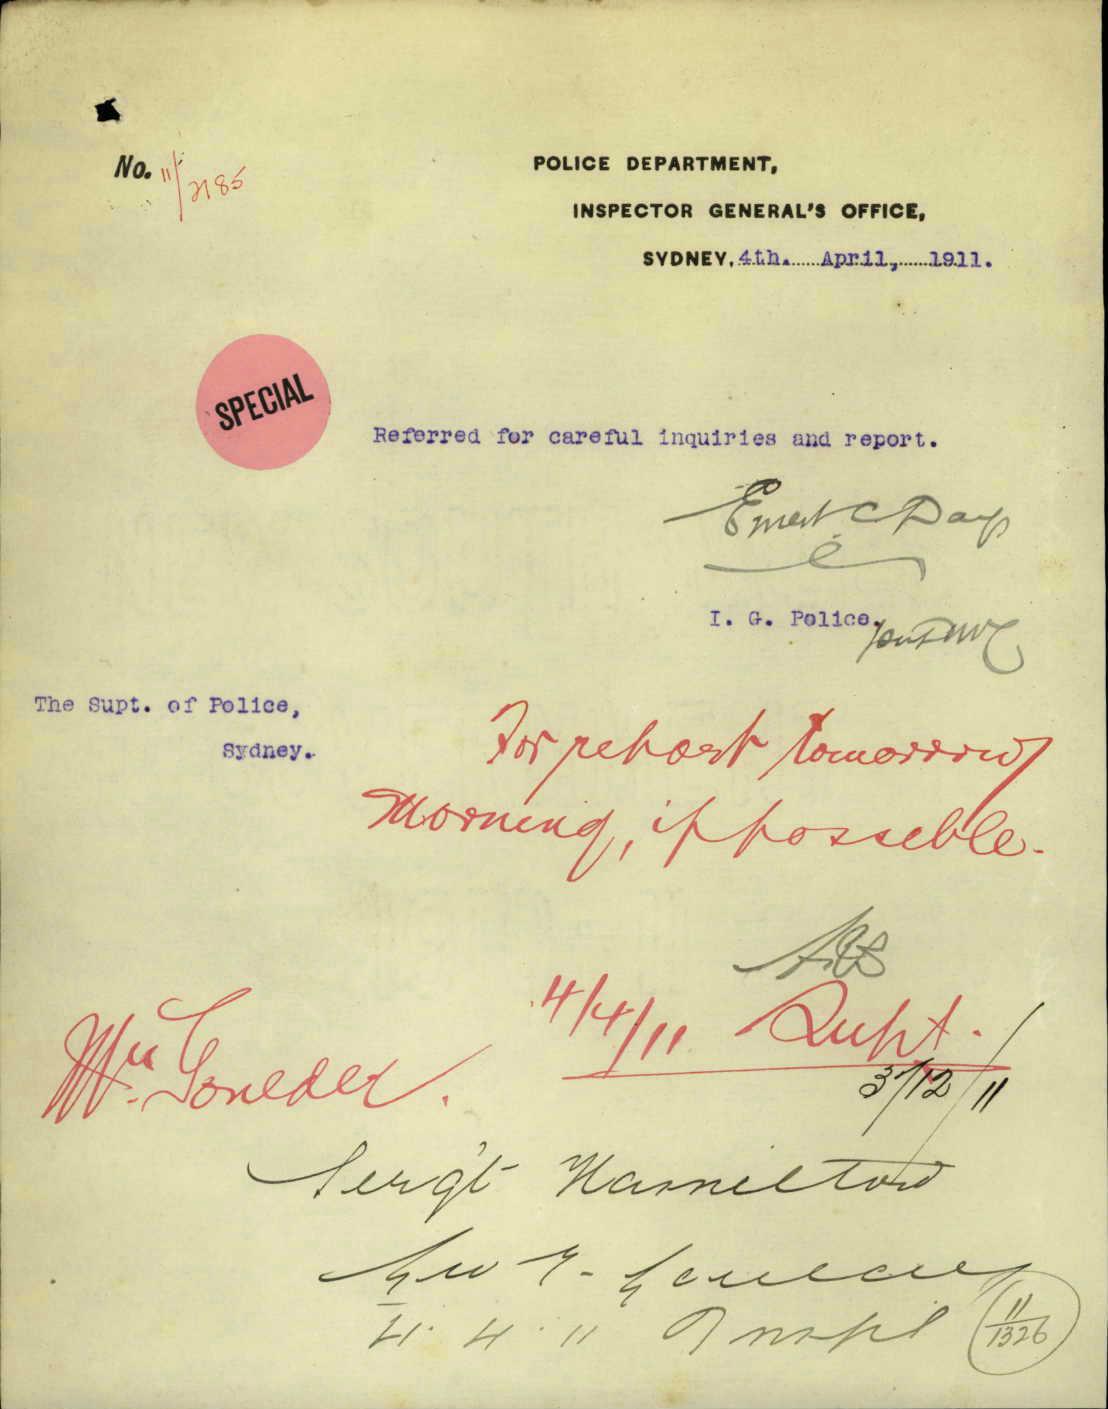 No. 11/2185
POLICE DEPARTMENT,
INSPECTOR GENERAL'S OFFICE,
SYDNEY, 4th. April, 1911.
SPECIAL
Referred for careful inquiries and report.
Ernest C Day
I. G. Police.
The Supt. of Police,
Sydney.
For report tomorrow
Morning, if possible.
4/4/11 Supt.
11
Sergt Hamilton
4. 4. 11 Inspr
11/1326